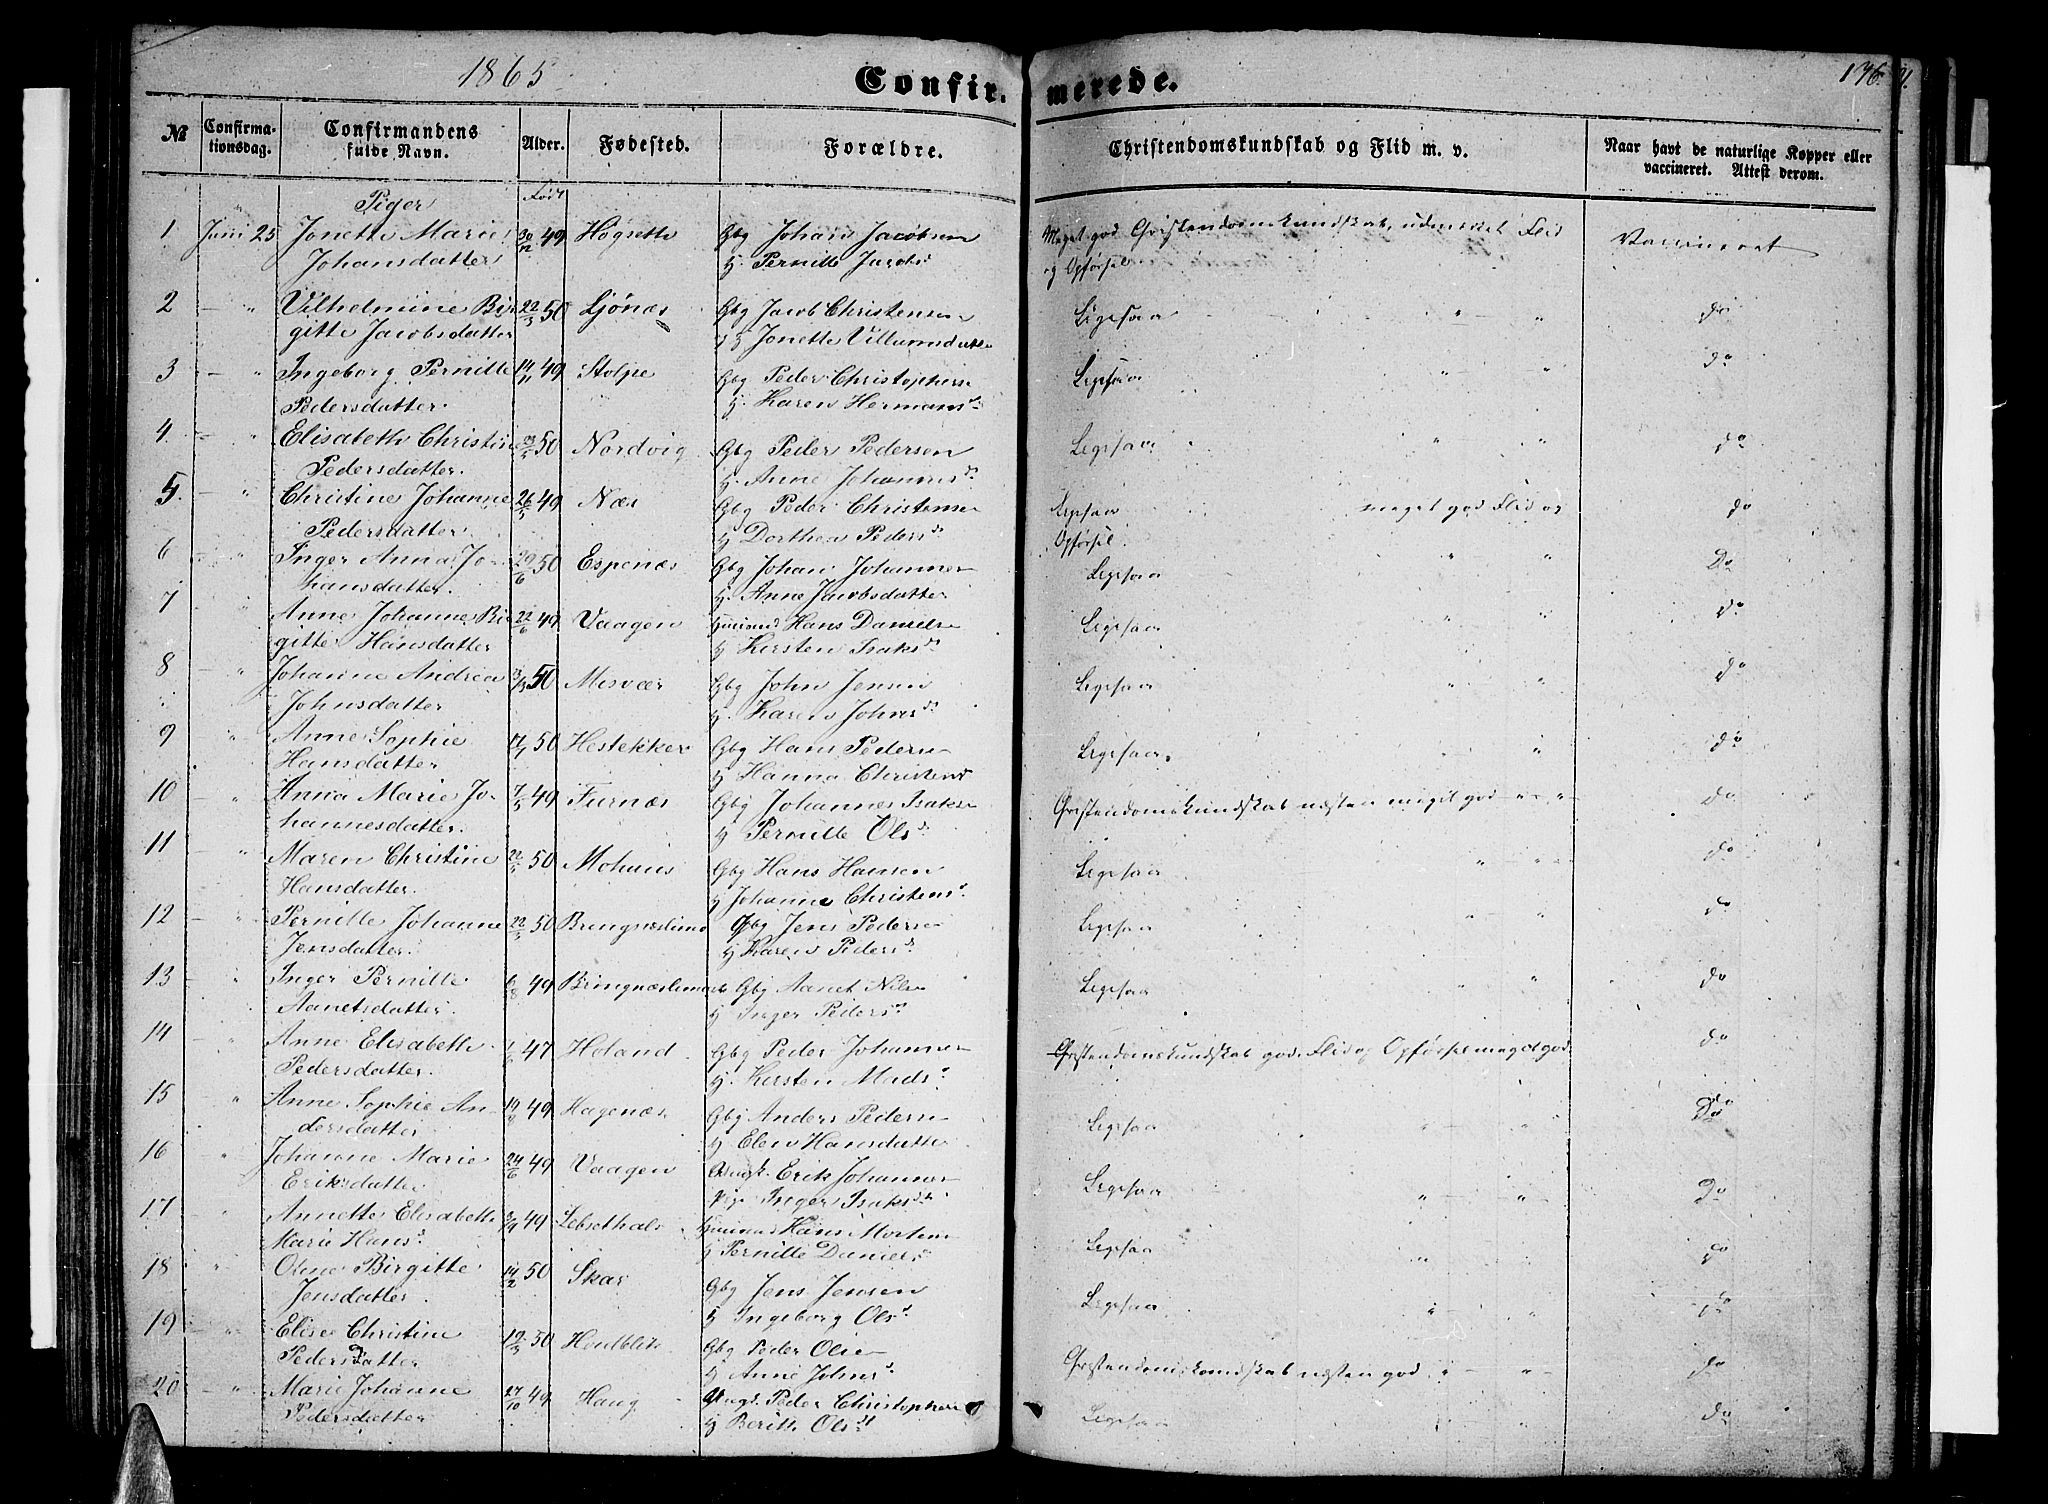 1865
Confirmerede.
176.
№
Confirmationsdag.
Confirmandens fulde Navn.
Alder.
Fødested.
Forældre.
Christendomskundskab og Flid m. v.
Naar havt de naturlige Kopper eller vaccineret. Attest derom.
Piger
Født
1 Juni 25 Jonette Marie 30/12 49 Høgsette Gbg Johan Jacobsen Meget god Christendomskundskab, udmærket Flid Vaccineret
Johansdatter H. Pernille Jacobsd og Opførsel
2 — " Vilhelmine Bir 50 Ljönæs Gbg Jacob Christensen Ligesaa — " do
gitte Jacobsdatter H Jonette Villumsdatter
3 — " Ingeborg Pernille 14/11 49 Stolpe Gbg Peder Christophersen Ligesaa " — " do
Pedersdatter. H. Karen Hermansd
4 — " Elisabeth Christine 50 Nordvig Gbg Peder Pedersen Ligesaa " — " do
Pedersdatter. H. Anne Johannesd
5. — " Christine Johanne 26/5 49 Næs Gbg Peder Christensen Ligesaa meget god Flid og do
Pedersdatter H Dorthea Pedersd Opførsel.
6 — " Inger Anna Jo- 50 Espenæs Gbg Johan Johannes Ligesaa " " Do
hansdatter. H. Anne Jacobsdatter
7 " Anne Johanne Bir 22/6 49 Vaagen Huusmand Hans Daniels Ligesaa " — " do
gitte Hansdatter H Kirsten Isaksd
8 — " Johanne Andrea 50 Misvær Gbg John Jensen Ligesaa " — " do
Johnsdatter H. Karen Johnsd
9 " Anne Sophie 50 Hestekker Gbg Hans Pedersen Ligesaa. — " do
Hansdatter H Hanna Christensd
10 — " Anna Marie Jo- 7/5 49 Furnæs Gbg Johannes Isaks Christendomskundskab næsten meget god — " — " — do
hannesdatter. H Pernille Olsd
11 " Maren Christine 50 Gbg Hans Hansen Ligesaa " — " do
Hansdatter. H Johanne Christensd
12 — " Pernille Johanne 22/3 50 Bringnæslimo Gbg Jens Pedersen Ligesaa " — " do
Jensdatter. H Karen Pedersd
13 — " Inger Pernille 6/8 49 Gbg Aanet Nils Ligesaa " — " do
Aanetsdatter. H Inger Pedersd
14 — " Anne Elisabeth 47 Holand Gbg Peder Johannes Christendomskundskab god. Flid og Opførsel meget god. do
Pedersdatter. H. Kirsten Madsd
15 " Anne Sophie An- 19/8 49 Hagenæs Gbg Anders Pedersen Ligesaa " — " Do
dersdatter H Elen Hansdatter
16 " Johanne Marie 24/6 49 Vaagen Erik Johannes Ligesaa " — " — Do
Eriksdatter Inger Isaksd
17 — " Annette Elisabeth 49 Huusmand Hans Morten Ligesaa " do
Marie Hansd H Pernille Daniels
18 " Oline Birgitte 14/2 50 Skar Gbg Jens Jensen Ligesaa " — " do
Jensdatter. H Ingeborg Olsd
19 — " Elise Christine 50 Gbg Peder Olsen Christendomskundskab næsten god. " — " — do
Pedersdatter H Anne Johnsd
20 — " Marie Johanne 27/10 49 Haug Ungk. Peder Christophersen Ligesaa " do
Pedersdatter H Berith Olsd